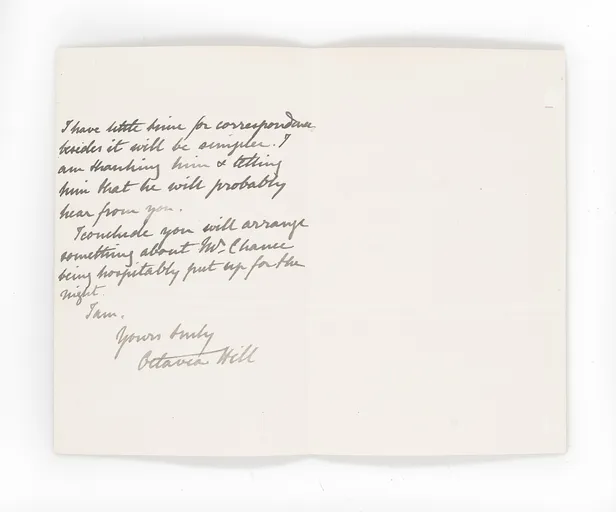 I have little time for correspondence
besides it will be simpler. I
am thanking him & telling
him that he will probably
hear from you.
I conclude you will arrange
something about Mr Chance
being hospitably put up for the
night.
I am.
Yours truly
Octavia Hill